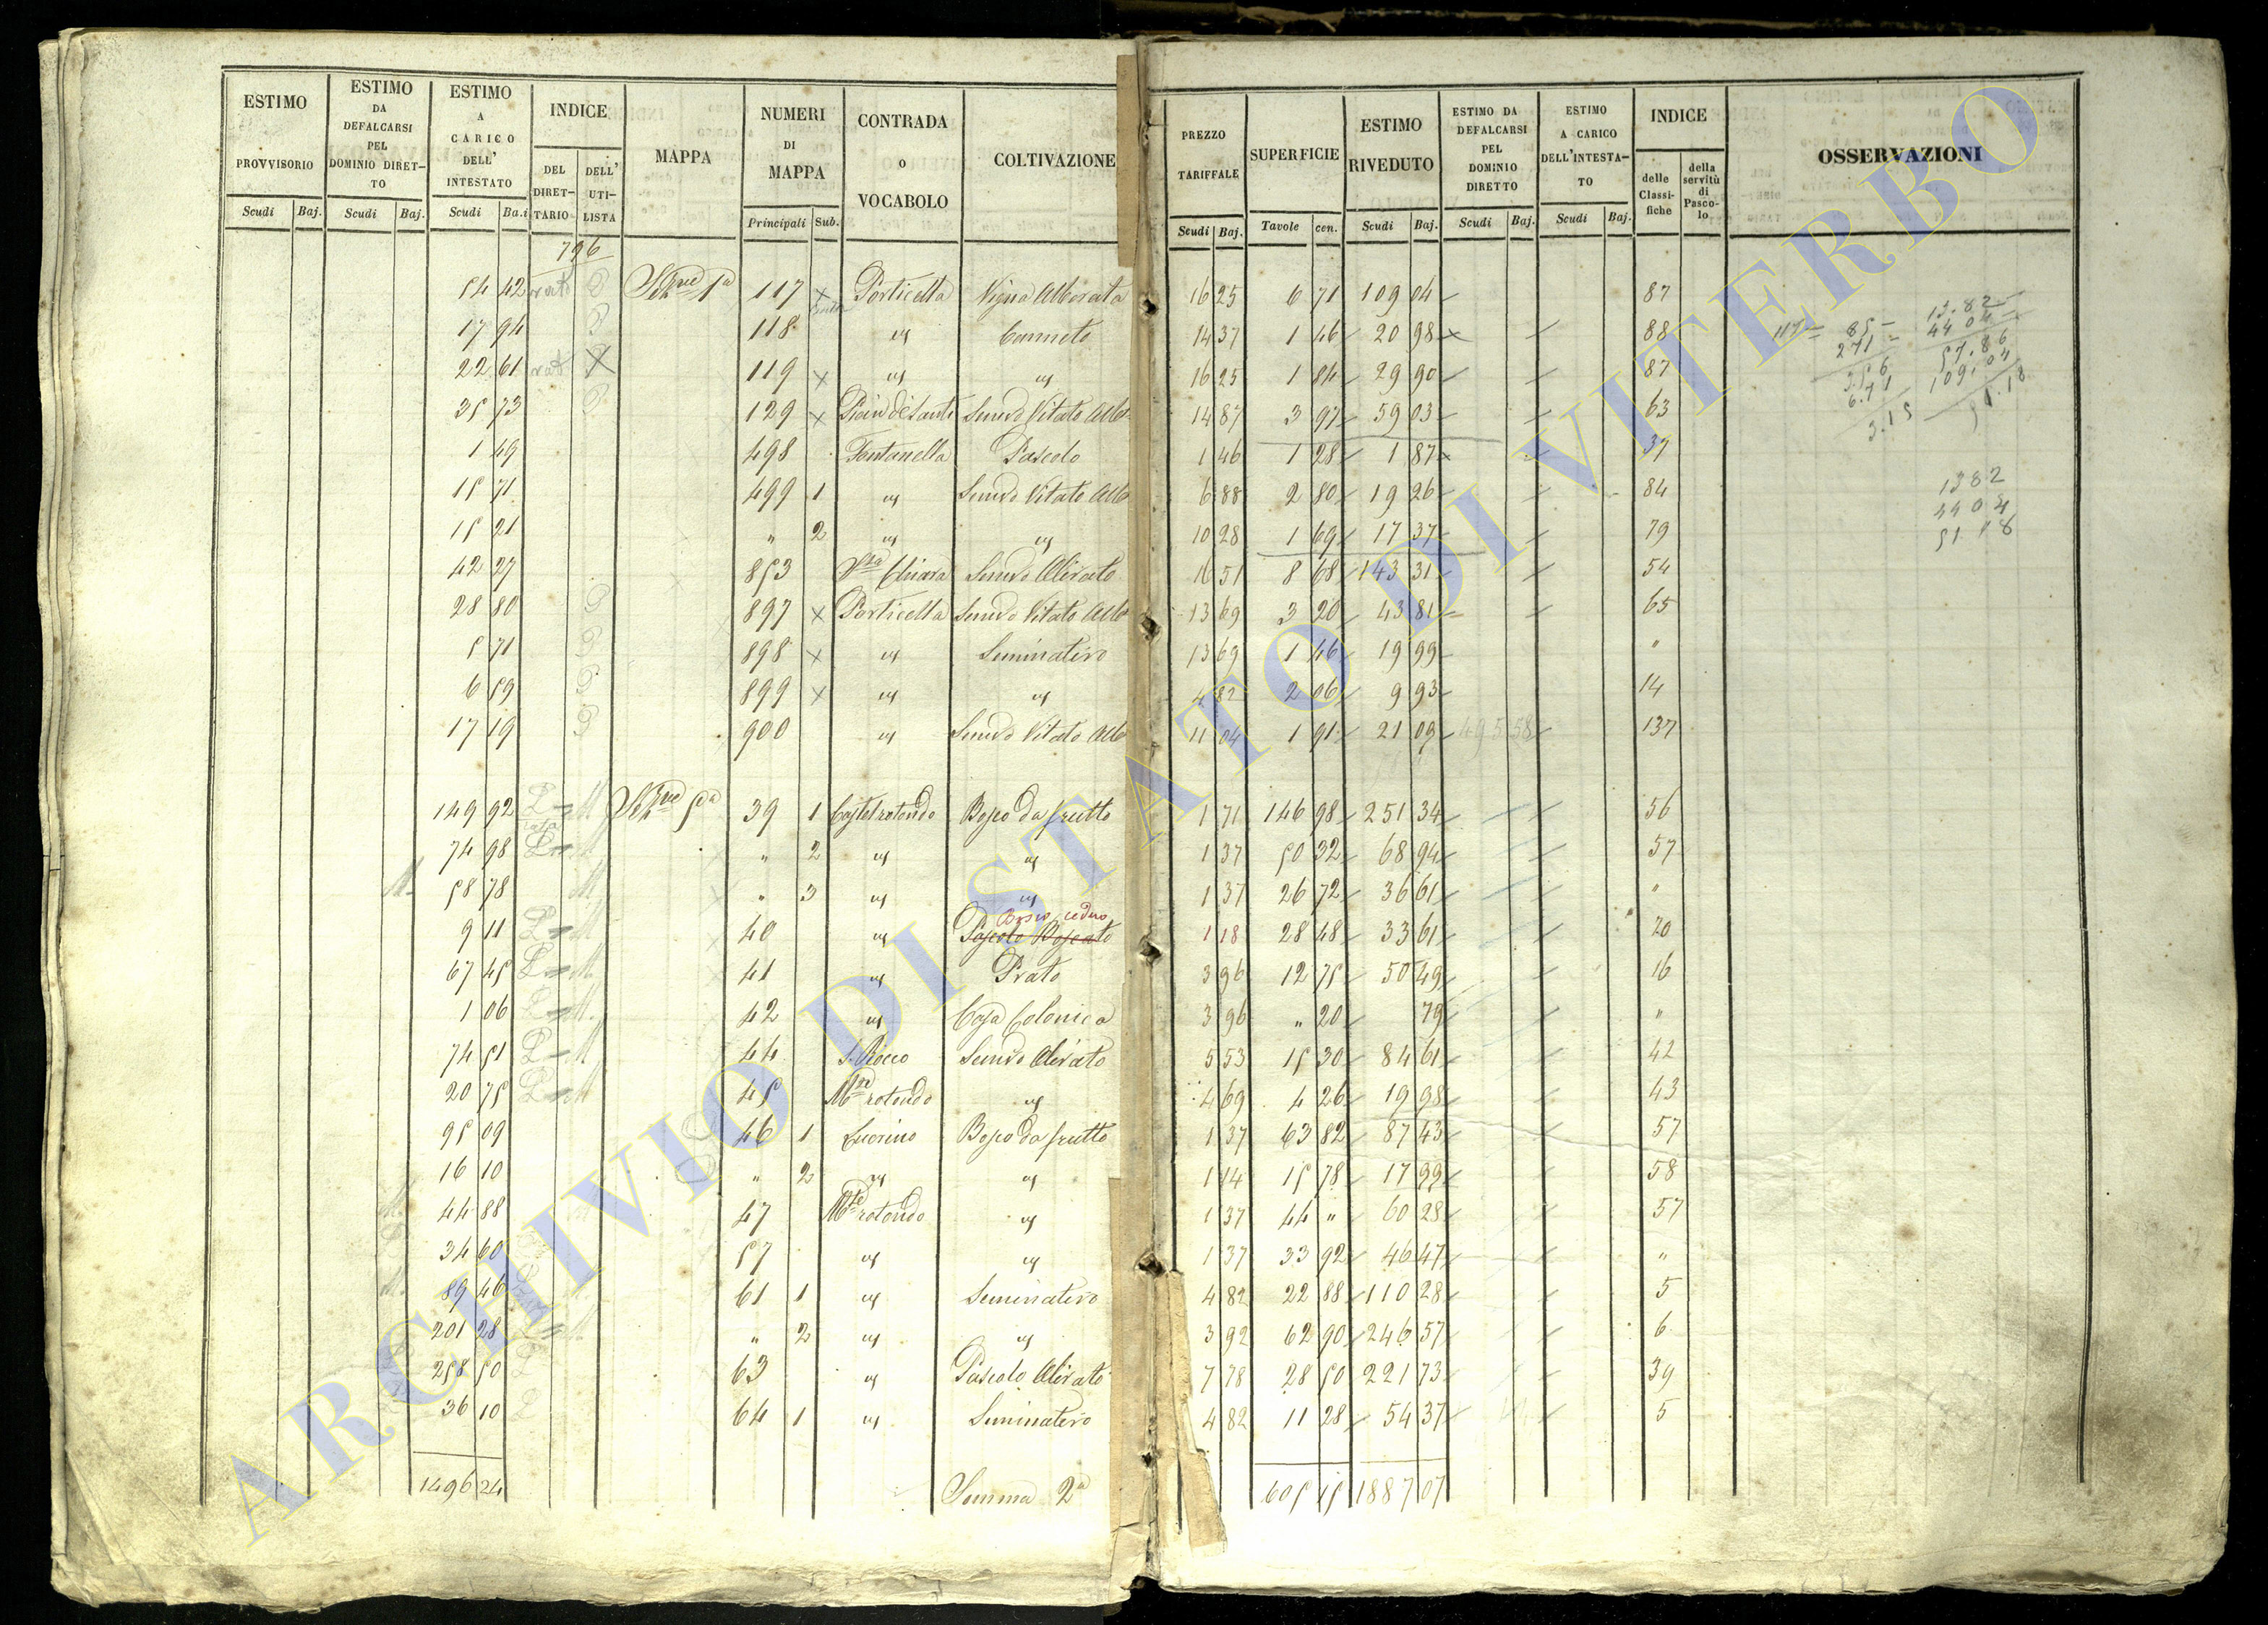 ESTIMO PROVVISORIO
ESTIMO DA DEFALCARSI PEL DOMINIO DIRETTO
ESTIMO A CARICO DELL' INTESTATO
INDICE
DEL DIRETTARIO
DELL' UTILISTA
MAPPA
NUMERI DI MAPPA
CONTRADA o VOCABOLO
COLTIVAZIONE
PREZZO TARIFFALE
SUPERFICIE
ESTIMO RIVEDUTO
ESTIMO DA DEFALCARSI PEL DOMINIO DIRETTO
ESTIMO A CARICO DELL'INTESTATO
INDICE
delle Classifiche
della servitù di Pascolo
OSSERVAZIONI
Scudi Baj. Scudi Baj. Scudi Ba.i Principali Sub. Scudi Baj. Tavole cen. Scudi Baj. Scudi Baj. Scudi Baj.
796
54 42 117 Porticella Vigna Alborata 16 25 6 71 109 04 87
17 94 118 " Canneto 14 37 1 46 20 98 88
22 61 119 " " 16 25 1 84 29 90 87
35 73 129 Semvo Vitato Alb 14 87 3 97 59 03 63
1 49 498 Fontanella Pascolo 1 46 1 28 1 87 37
15 71 499 1 " Semvo Vitato Alb 6 88 2 80 19 26 84
15 21 " 2 " " 10 28 1 69 17 37 79
42 27 853 Sta Chiara Semvo Olivato 16 51 8 68 143 31 54
28 80 897 Porticella Semvo Vitato Alb 13 69 3 20 43 81 65
5 71 898 " Seminativo 13 69 1 46 19 99 "
6 59 899 " " 4 82 2 06 9 93 14
17 19 900 " Semvo Vitato Alb 11 04 1 91 21 09 495 58 137
149 92 39 1 Castelrotondo Bosco da frutto 1 71 146 98 251 34 56
74 98 " 2 " " 1 37 50 32 68 94 57
58 78 " 3 " " 1 37 26 72 36 61 "
Bosco ceduo
9 11 40 " Pascolo Boscato 1 18 28 48 33 61 20
67 45 41 " Prato 3 96 12 75 50 49 16
1 06 42 " Casa Colonica 3 96 " 20 79 "
74 51 44 S. Rocco Semvo Olivato 5 53 15 30 84 61 42
20 75 45 Mte rotondo " 4 69 4 26 19 98 43
95 09 46 1 Bosco da frutto 1 37 63 82 87 43 57
16 10 " 2 " " 1 14 15 78 17 99 58
44 88 47 Mte rotondo " 1 37 44 " 60 28 57
34 60 57 " " 1 37 33 92 46 47 "
89 46 61 1 " Seminativo 4 82 22 88 110 28 5
201 28 " 2 " " 3 92 62 90 246 57 6
258 50 63 " Pascolo Olivato 7 78 28 50 221 73 39
36 10 64 1 " Seminativo 4 82 11 28 54 37 5
1496 24 Somma 2a 605 15 1887 07
117
85
271
3.56
6.71
3.15
13.82
44 04
57.86
109.04
51.18
1382
4404
51 18
ARCHIVIO DI STATO DI VITERBO